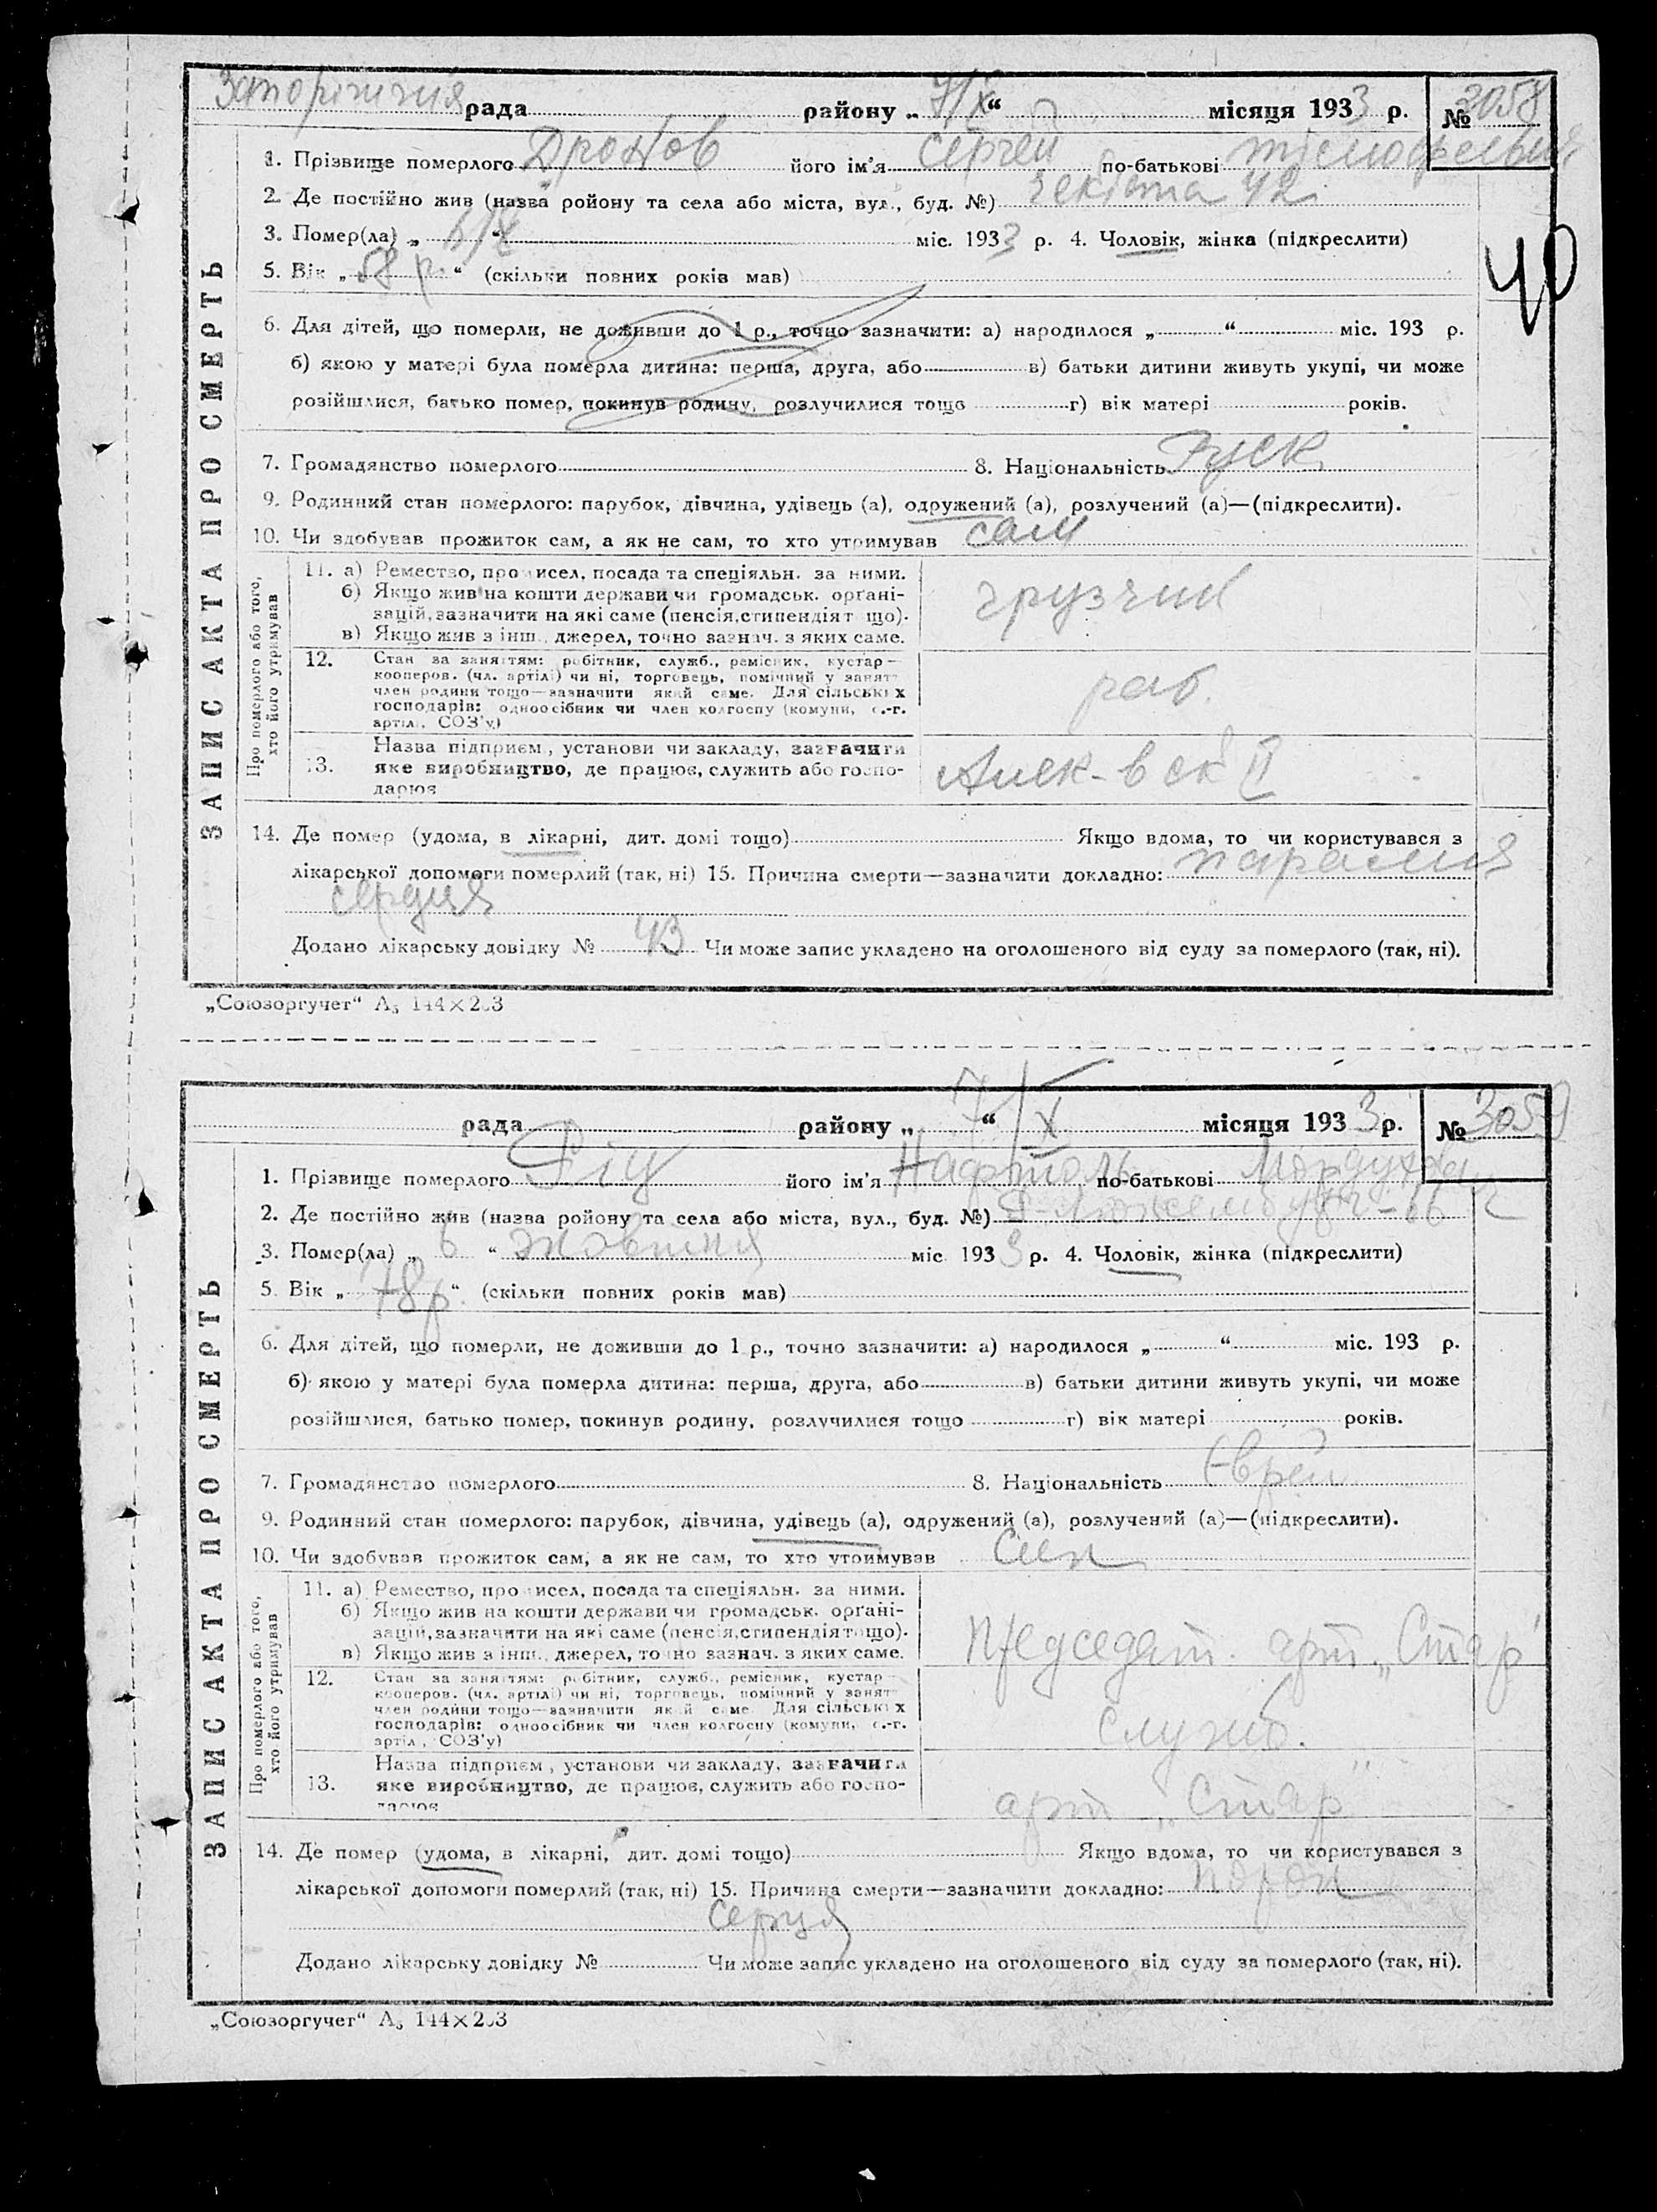 Запорізька рада района „7/X“ місяця 1933 р. № 3058
ЗАПИС АКТА ПРО СМЕРТЬ
1. Прізвище померлого Дронов його ім'я Сергей по-батькові
2. Де постійно жив (назва ройону та села або міста, вул., буд. №) Чекиста 42
3. Помер(ла) „ 6/X “ міс. 1933 р. 4. Чоловік, жінка (підкреслити)
5. Вік „ 58 р. “ (скільки повних років мав)
6. Для дітей, що померли, не доживши до 1 р., точно зазначити: а) народилося „ “ міс. 193 р.
б) якою у матері була померла дитина: перша, друга, або в) батьки дитини живуть укупі, чи може
розійшлися, батько помер, покинув родину, розлучилися тощо г) вік матері років.
7. Громадянство померлого 8. Національність Руск
9. Родинний стан померлого: парубок, дівчина, удівець (а), одружений (а), розлучений (а)—(підкреслити).
10. Чи здобував прожиток сам, а як не сам, то хто утримував сам
Про померлого або того, хто його утримував
11. а) Ремество, промисел, посада та спеціяльн. за ними.
б) Якщо жив на кошти держави чи громадськ. органі-
зацій, зазначити на які саме (пенсія, стипендія тощо).
в) Якщо жив з інш. джерел, точно зазнач. з яких саме.
грузчик
12. Стан за заняттям: робітник, служб., ремісник, кустар—
кооперов. (чл. артілі) чи ні, торговець, помічний у занятт
член родини тощо—зазначити який саме. Для сільських
господарів: одноосібник чи член колгоспу (комуни, с.-г.
артілі, СОЗ'у)
раб.
13. Назва підприєм., установи чи закладу, зазначити
яке виробництво, де працює, служить або госпо-
дарює
Алек-вск II
14. Де помер (удома, в лікарні, дит. домі тощо) Якщо вдома, то чи користувався з
лікарської допомоги померлий (так, ні) 15. Причина смерти—зазначити докладно: паралич
сердця
Додано лікарську довідку № 43 Чи може запис укладено на оголошеного від суду за померлого (так, ні).
„Союзоргучет“ А₅ 144×203
40
рада района „7/X“ місяця 1933 р. № 3059
ЗАПИС АКТА ПРО СМЕРТЬ
1. Прізвище померлого його ім'я Нафтоль по-батькові
2. Де постійно жив (назва ройону та села або міста, вул., буд. №) Р-Люксембург-66
3. Помер(ла) „ 6 “ жовтня міс. 1933 р. 4. Чоловік, жінка (підкреслити)
5. Вік „ 78 р. “ (скільки повних років мав)
6. Для дітей, що померли, не доживши до 1 р., точно зазначити: а) народилося „ “ міс. 193 р.
б) якою у матері була померла дитина: перша, друга, або в) батьки дитини живуть укупі, чи може
розійшлися, батько помер, покинув родину, розлучилися тощо г) вік матері років.
7. Громадянство померлого 8. Національність Єврей
9. Родинний стан померлого: парубок, дівчина, удівець (а), одружений (а), розлучений (а)—(підкреслити).
10. Чи здобував прожиток сам, а як не сам, то хто утримував Син
Про померлого або того, хто його утримував
11. а) Ремество, промисел, посада та спеціяльн. за ними.
б) Якщо жив на кошти держави чи громадськ. органі-
зацій, зазначити на які саме (пенсія, стипендія тощо).
в) Якщо жив з інш. джерел, точно зазнач. з яких саме.
председат. арт. „Стар“
12. Стан за заняттям: робітник, служб., ремісник, кустар—
кооперов. (чл. артілі) чи ні, торговець, помічний у занятт
член родини тощо—зазначити який саме. Для сільських
господарів: одноосібник чи член колгоспу (комуни, с.-г.
артіл., СОЗ'у)
служб.
13. Назва підприєм., установи чи закладу, зазначити
яке виробництво, де працює, служить або госпо-
дарює
арт „Стар“
14. Де помер (удома, в лікарні, дит. домі тощо) Якщо вдома, то чи користувався з
лікарської допомоги померлий (так, ні) 15. Причина смерти—зазначити докладно:
серця
Додано лікарську довідку № Чи може запис укладено на оголошеного від суду за померлого (так, ні).
„Союзоргучет“ А₅ 144×203